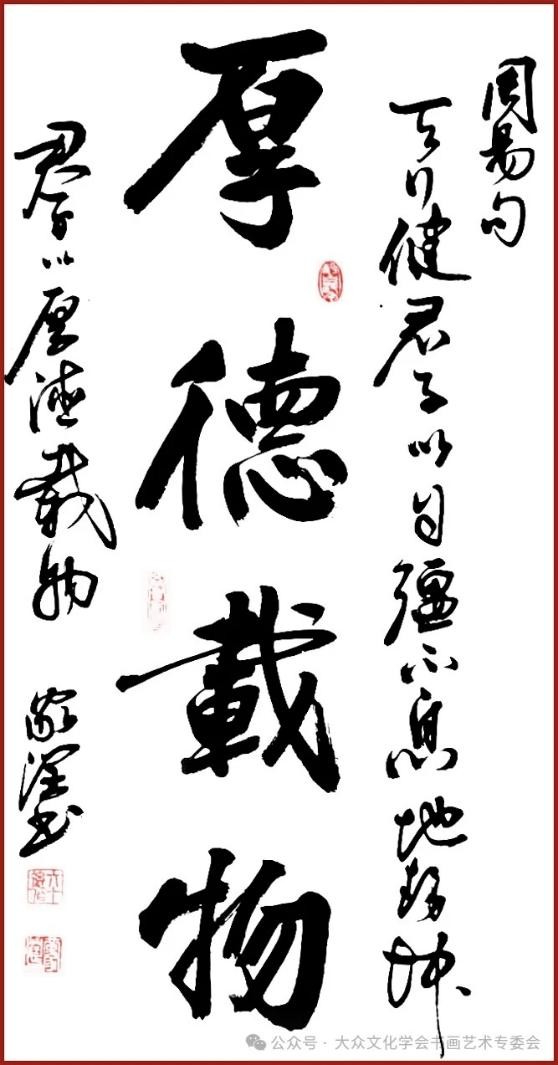 周易句
天行健君子以自彊不息地势坤
厚德載物
君子以厚德載物
书
公众号 · 大众文化学会书画艺术专委会